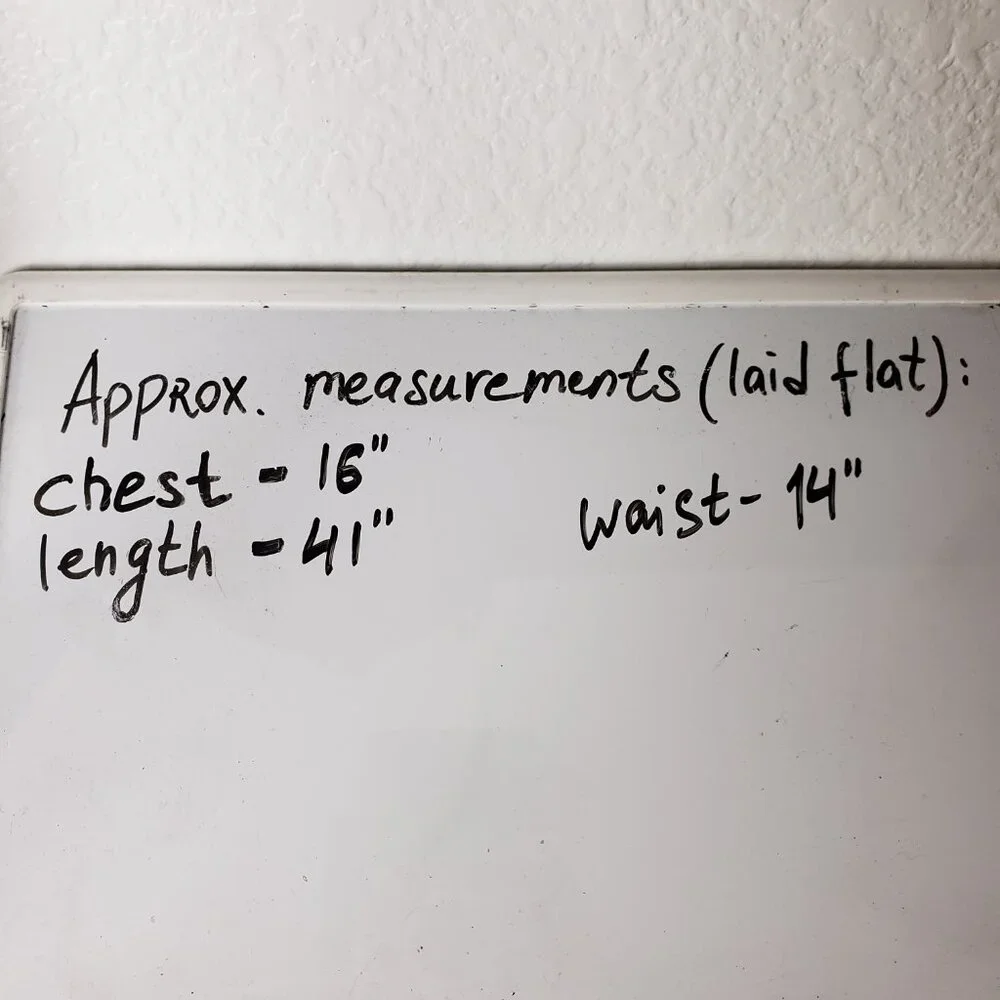 Approx. measurements (laid flat):
chest - 16"
waist - 14"
length - 41"